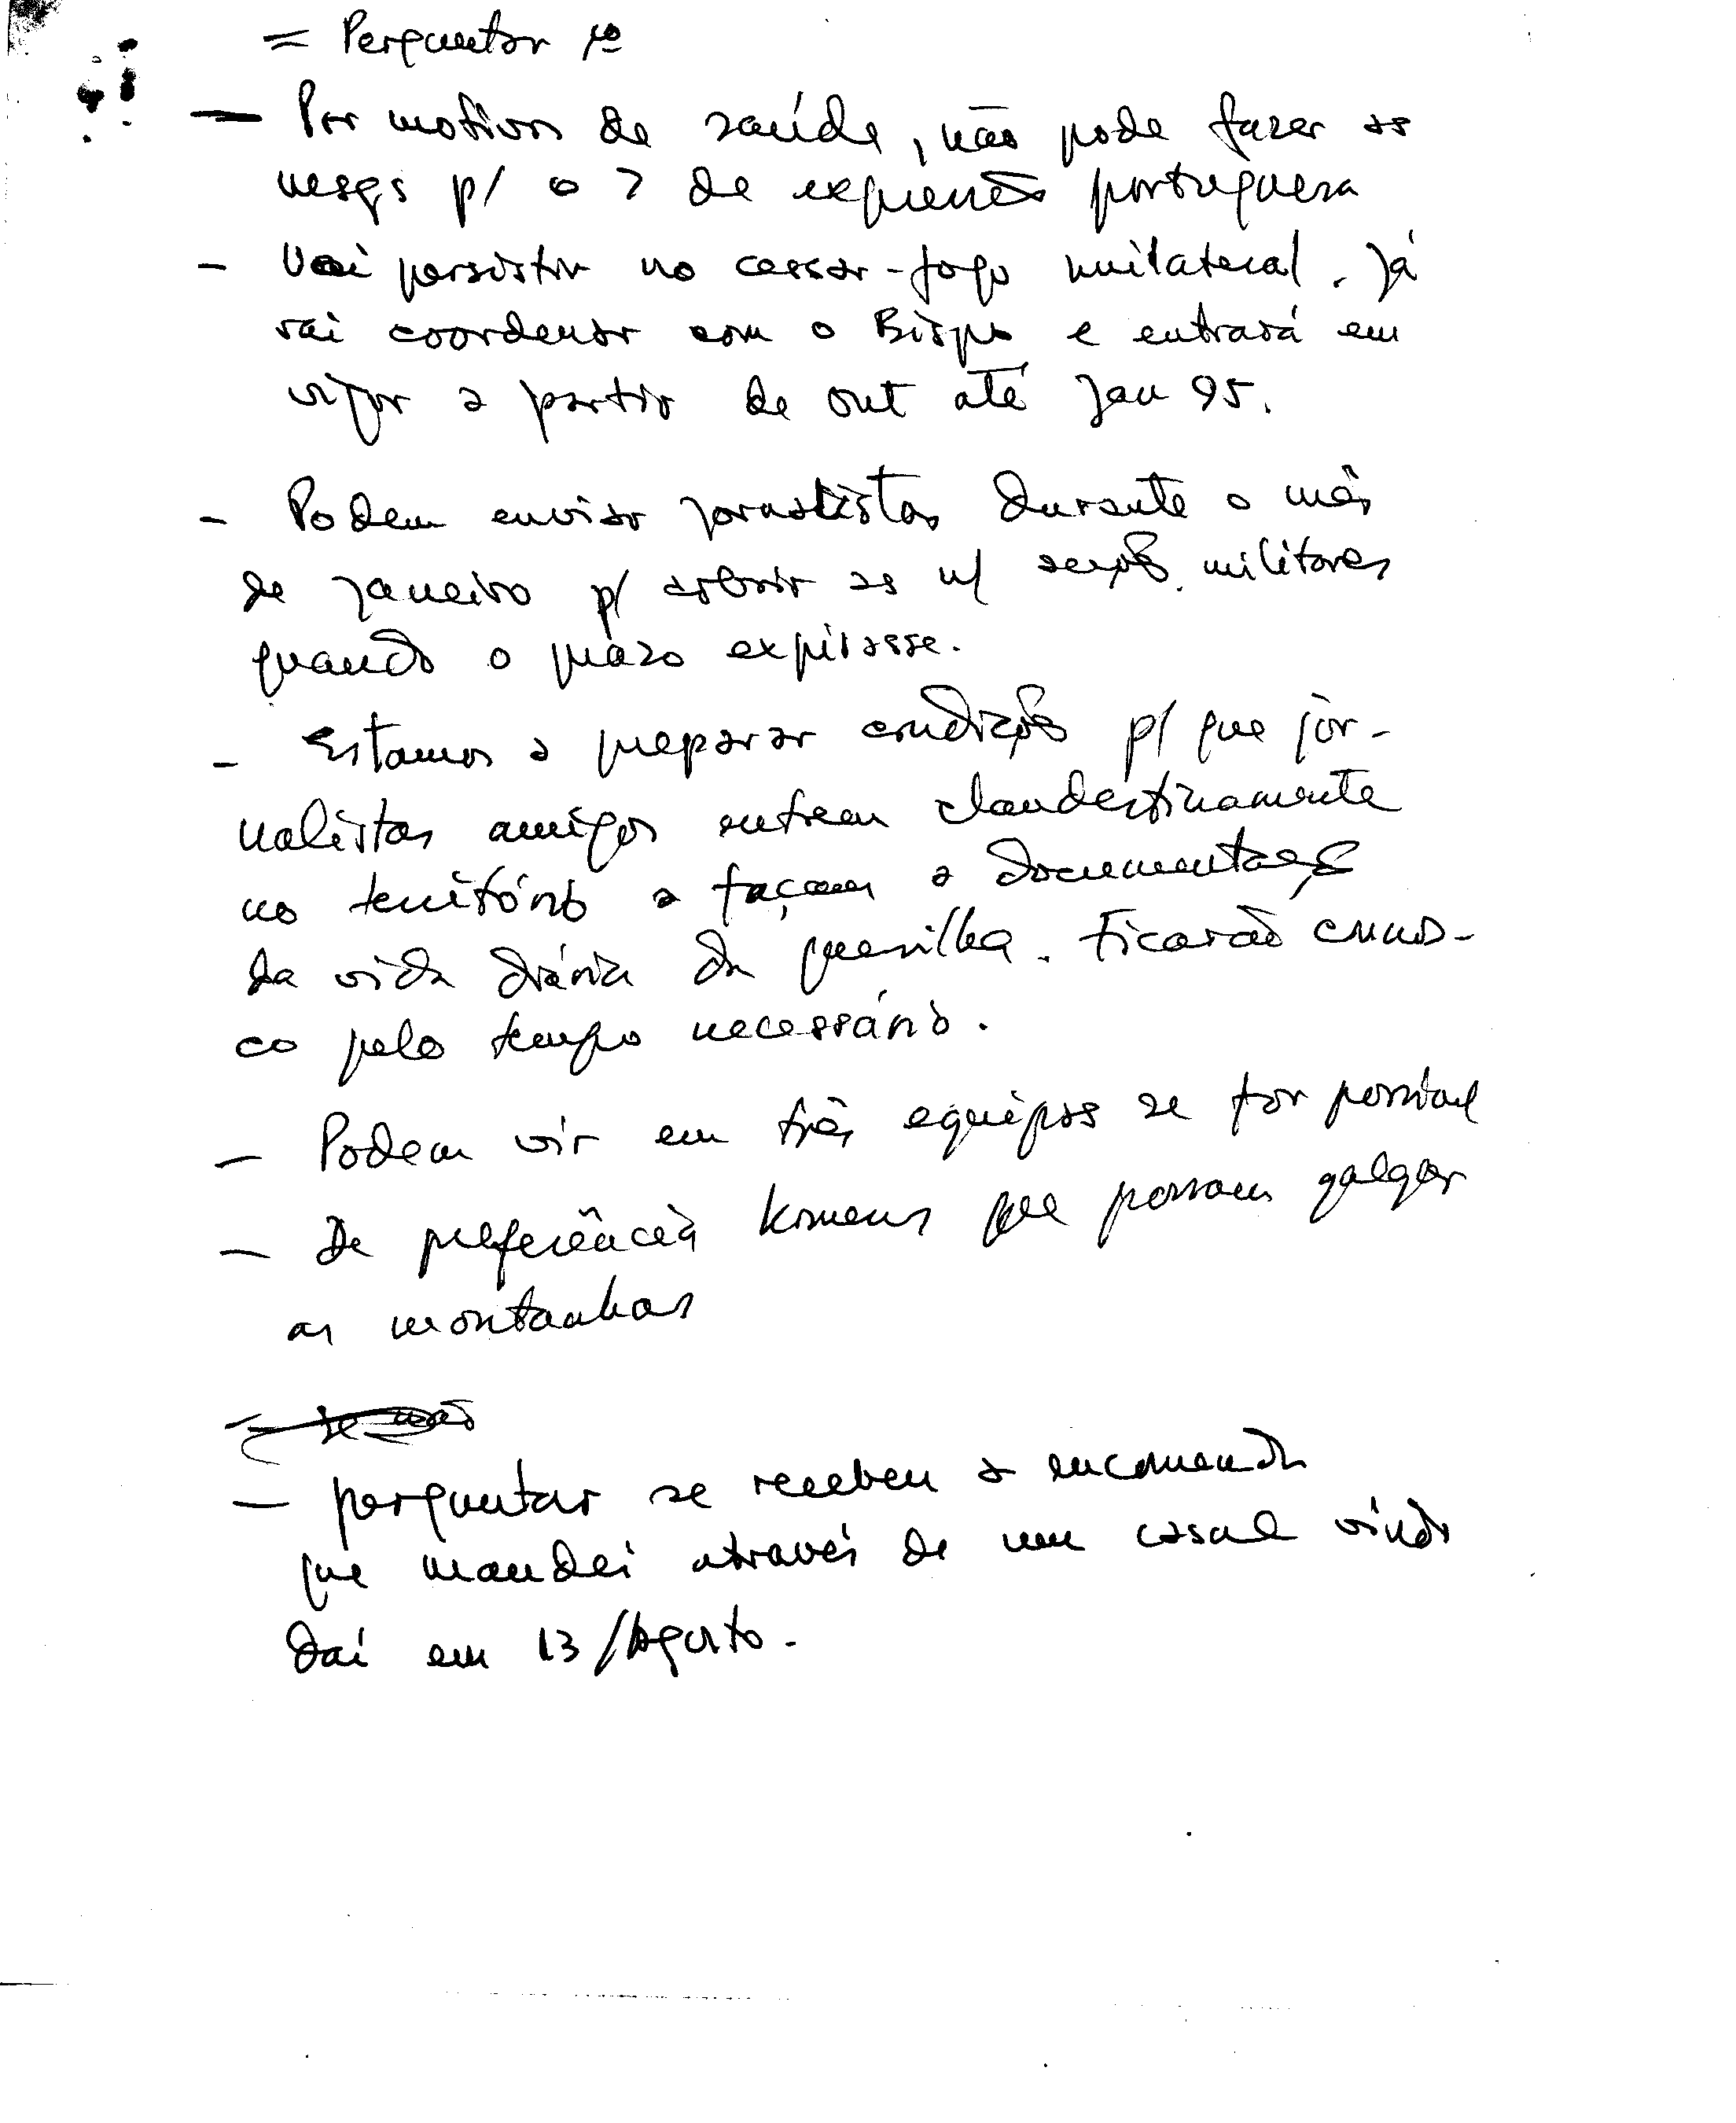 = Perguntar
— Por motivos de saúde, não pode fazer as
msgs p/ o 7 de expressão portuguesa
- Vai persistir no cessar-fogo unilateral. Já
vai coordenar com o Bispo e entrará em
vigor a partir de out até Jan 95.
- Podem enviar jornalistas durante o mês
de Janeiro p/ cobrir as n/ acções militares
quando o prazo expirasse.
- Estamos a preparar condições p/ que jor-
nalistas amigos entrem clandestinamente
no território e façam a documentação
da vida diária da guerrilha. Ficarão connos-
co pelo tempo necessário.
- Podem vir em três equipas se for possível
- De preferência homens que possam galgar
as montanhas
- se não
- perguntar se recebeu a encomenda
que mandei através de um casal vindo
daí em 13/Agosto.